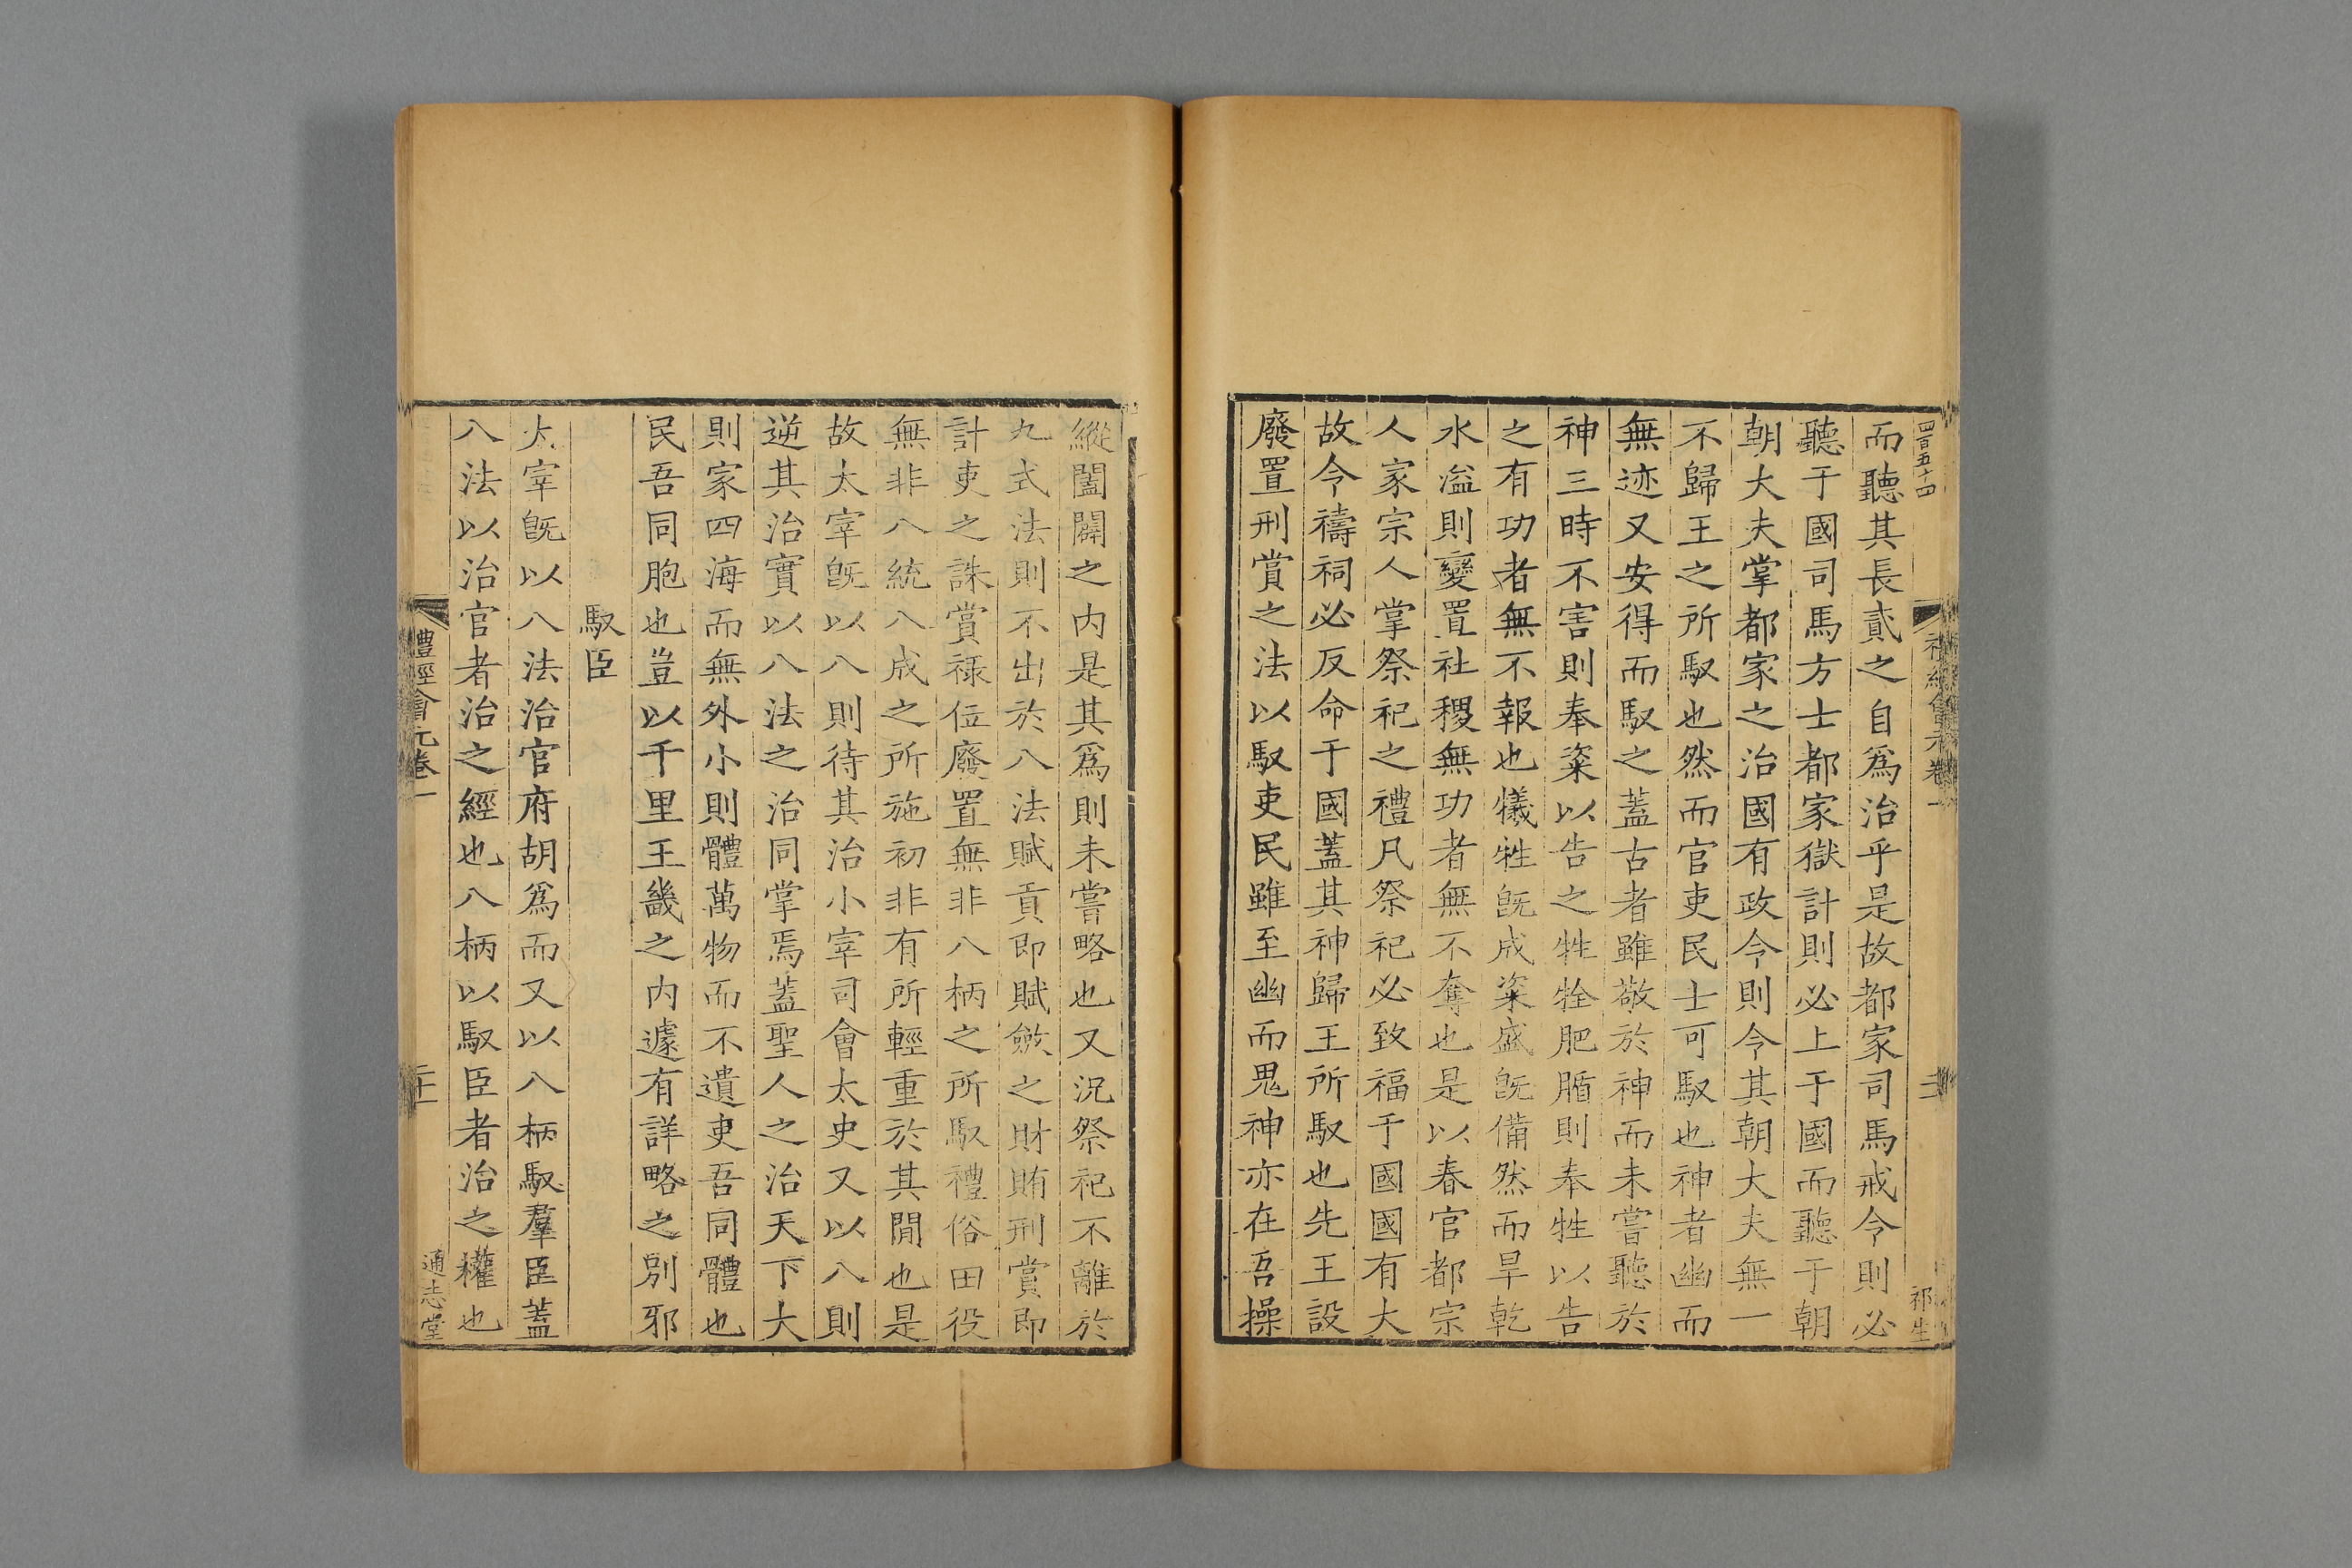 四百五十四
禮經會元卷一
祁生
而聽其長貳之自爲治乎是故都家司馬戒令則必
聽于國司馬方士都家獄計則必上于國而聽于朝
朝大夫掌都家之治國有政令則令其朝大夫無一
不歸王之所馭也然而官吏民士可馭也神者幽而
無迹又安得而馭之蓋古者雖敬於神而未嘗聽於
神三時不害則奉粢以告之牲牷肥腯則奉牲以告
之有功者無不報也犧牲旣成粢盛旣備然而旱乾
水溢則變置社稷無功者無不奪也是以春官都宗
人家宗人掌祭祀之禮凡祭祀必致福于國國有大
故令禱祠必反命于國蓋其神歸王所馭也先王設
廢置刑賞之法以馭吏民雖至幽而鬼神亦在吾操
縱闔闢之内是其爲則未嘗略也又況祭祀不離於
九式法則不出於八法賦貢即賦斂之財賄刑賞即
計吏之誅賞祿位廢置無非八柄之所馭禮俗田役
無非八統八成之所施初非有所輕重於其閒也是
故太宰旣以八則待其治小宰司會太史又以八則
逆其治實以八法之治同掌焉蓋聖人之治天下大
則家四海而無外小則體萬物而不遺吏吾同體也
民吾同胞也豈以千里王畿之内遽有詳略之別邪
馭臣
太宰旣以八法治官府胡爲而又以八柄馭羣臣蓋
八法以治官者治之經也八柄以馭臣者治之權也
禮經會元卷一
通志堂